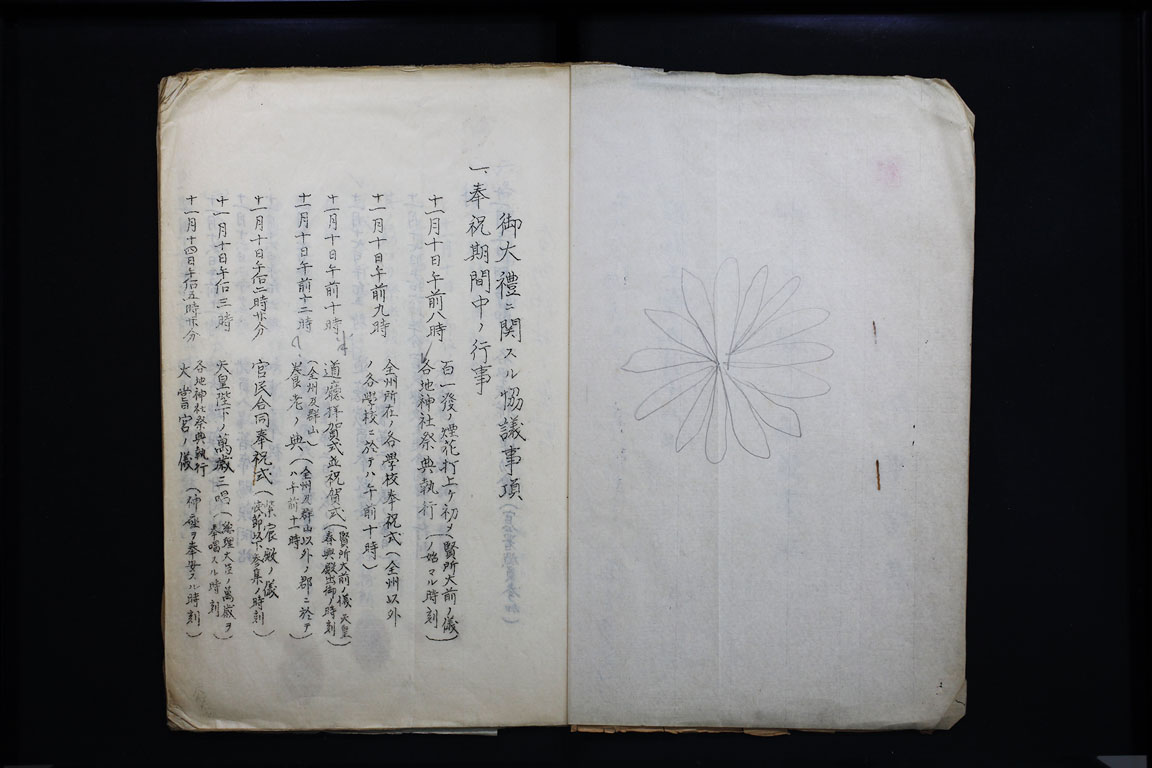 御大禮ニ関スル協議事項
一、奉祝期間中ノ行事
十一月十日午前八時 百一發ノ煙花打上ケ初メ(賢所大前ノ儀
各地神社祭典執行(ノ始マル時刻)
十一月十日午前九時 全州所在ノ各學校奉祝式(全州以外
ノ各學校ニ於テハ午前十時)
十一月十日午前十時 道廳拝賀式並祝賀式(賢所大前ノ儀 天皇
(全州及群山)(春興殿出御ノ時刻)
十一月十日午前十二時 養老ノ典(全州及群山以外ノ郡ニ於テ
ハ午前十一時)
十一月十日午后二時廿分 官民合同奉祝式(紫宸殿ノ儀
以下参集ノ時刻)
十一月十日午后三時 天皇陛下ノ萬歳三唱(總理大臣ノ萬歳ヲ
奉唱スル時刻)
各地神社祭典執行
十一月十四日午后五時廿分 大嘗宮ノ儀(神座ヲ奉安スル時刻)